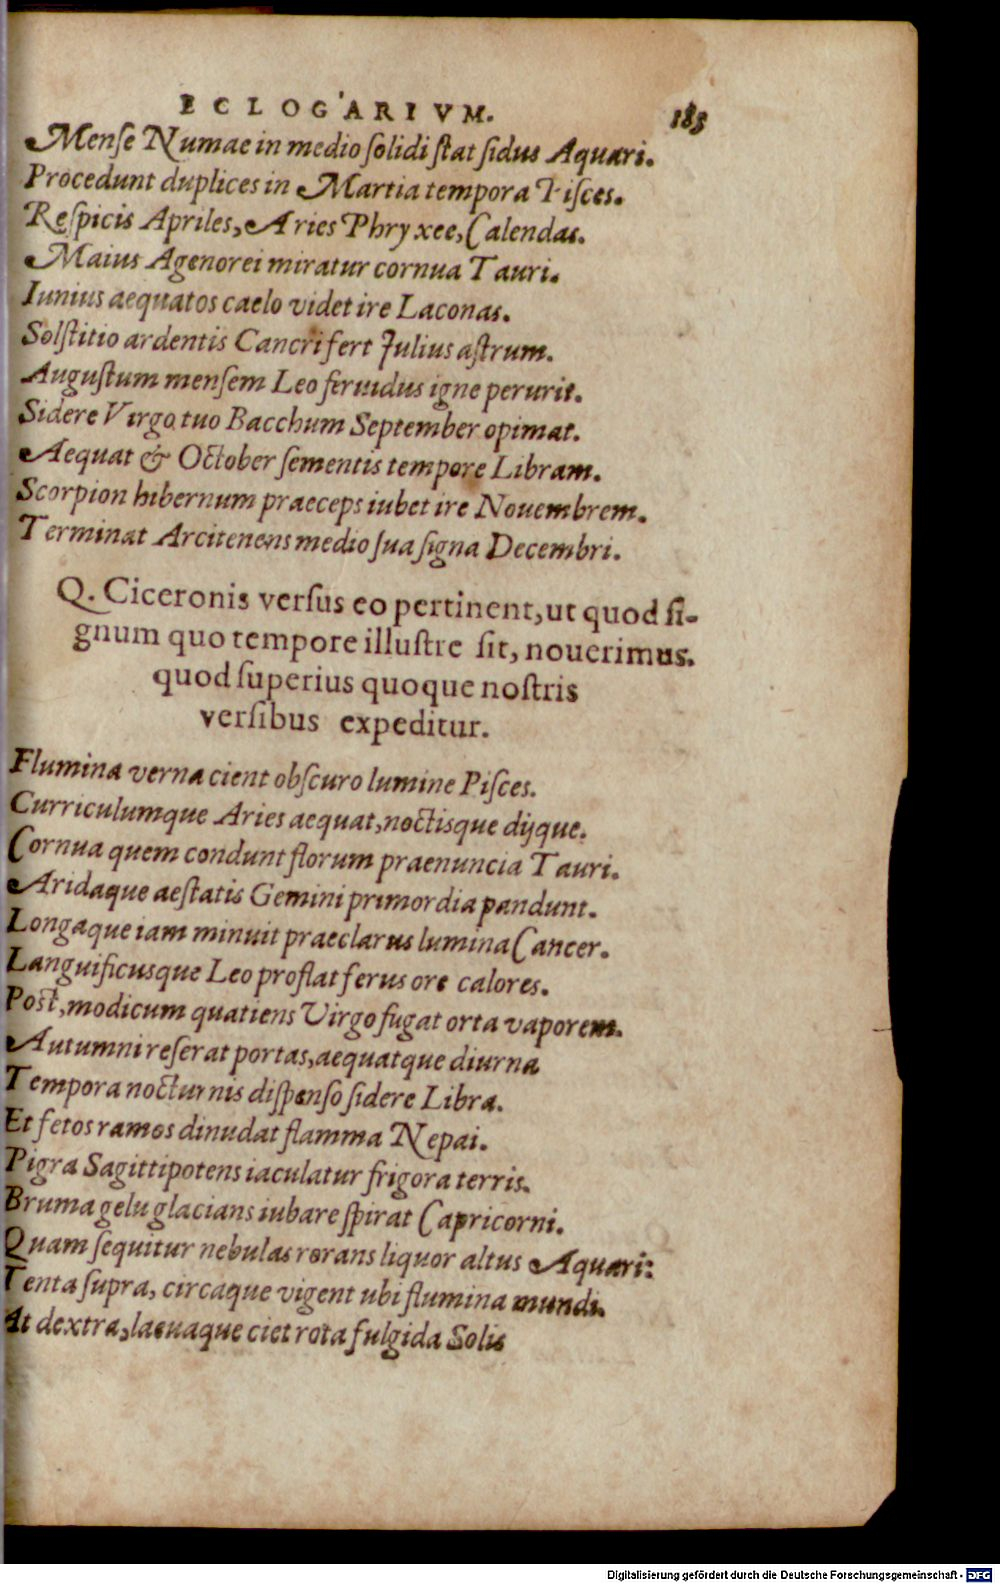 ECLOGARIVM. 183
Menſe Numae in medio ſolidi ſtat ſidus Aquari.
Procedunt duplices in Martia tempora Piſces.
Reſpicis Apriles, Aries Phryxee, Calendas.
Maius Agenorei miratur cornua Tauri.
Iunius aequatos caelo videt ire Laconas.
Solſtitio ardentis Cancri fert Julius aſtrum.
Auguſtum menſem Leo feruidus igne perurit.
Sidere Virgo tuo Bacchum September opimat.
Aequat & October ſementis tempore Libram.
Scorpion hibernum praeceps iubet ire Nouembrem.
Terminat Arcitenens medio ſua ſigna Decembri.
Q. Ciceronis verſus eo pertinent, ut quod ſi-
gnum quo tempore illuſtre ſit, nouerimus.
quod ſuperius quoque noſtris
verſibus expeditur.
Flumina verna cient obſcuro lumine Piſces.
Curriculumque Aries aequat, noctisque dijque.
Cornua quem condunt florum praenuncia Tauri.
Aridaque aeſtatis Gemini primordia pandunt.
Longaque iam minuit praeclarus lumina Cancer.
Languificusque Leo proflat ferus ore calores.
Poſt, modicum quatiens Virgo fugat orta vaporem.
Autumni reſerat portas, aequatque diurna
Tempora nocturnis diſpenſo ſidere Libra.
Et fetos ramos dinudat flamma Nepai.
Pigra Sagittipotens iaculatur frigora terris.
Bruma gelu glacians iubare ſpirat Capricorni.
Quam ſequitur nebulas rorans liquor altus Aquari:
Tenta ſupra, circaque vigent ubi flumina mundi.
At dextra, laeuaque ciet rota fulgida Solis
Digitalisierung gefördert durch die Deutsche Forschungsgemeinschaft - DFG